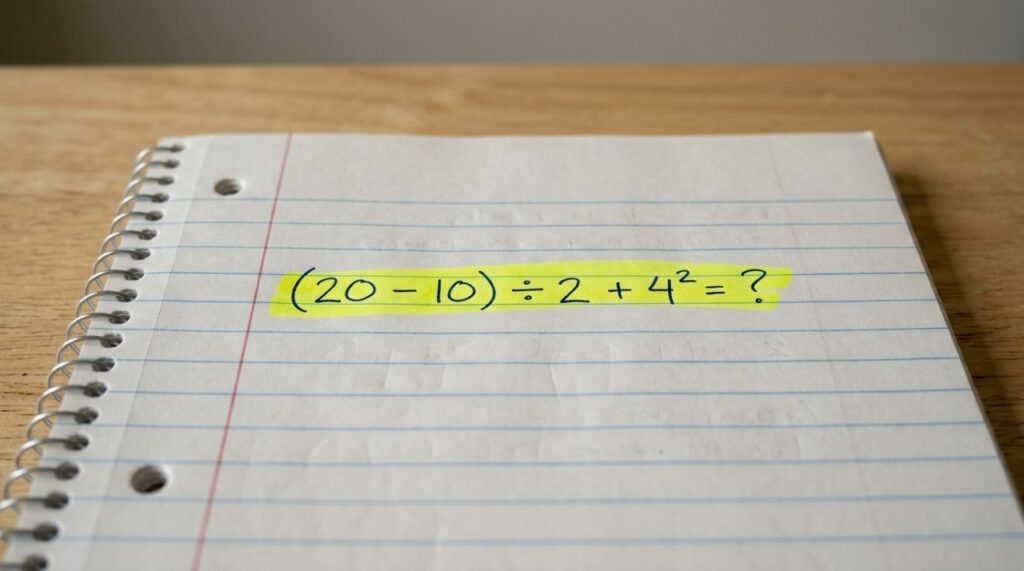 (20 − 10) ÷ 2 + 4² = ?